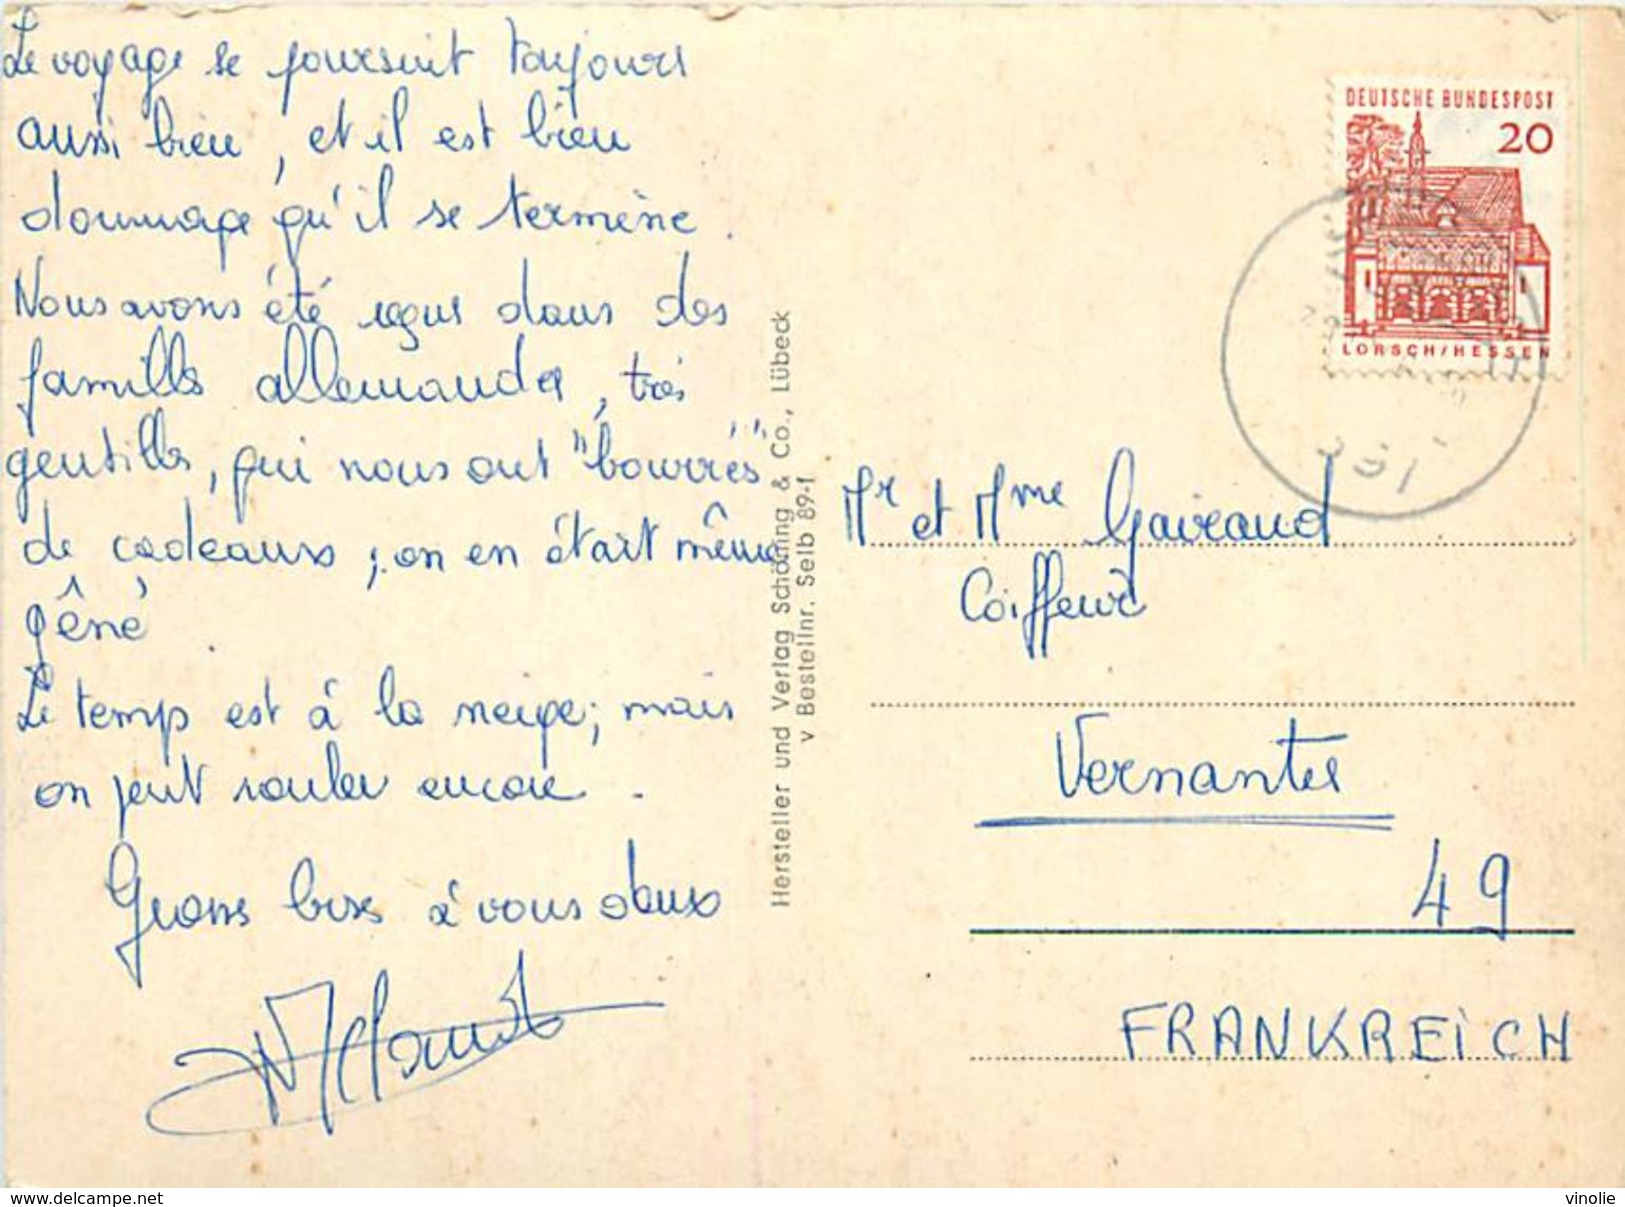 Le voyage se poursuit toujours
aussi bien, et il est bien
dommage qu'il se termine.
Nous avons été reçus dans des
familles allemandes, très
gentilles, qui nous ont "bourrés"
de cadeaux ; on en était même
gêné.
Le temps est à la neige; mais
on peut rouler encore.
Grosses bises à vous deux
Hersteller und Verlag Schöning & Co., Lübeck
v Bestellnr. Selb 89-1
DEUTSCHE BUNDESPOST
20
LORSCH/HESSEN
Mr et Mme Gaivaud
Coiffeur
Vernantes
49
FRANKREICH
www.delcampe.net
vinolie